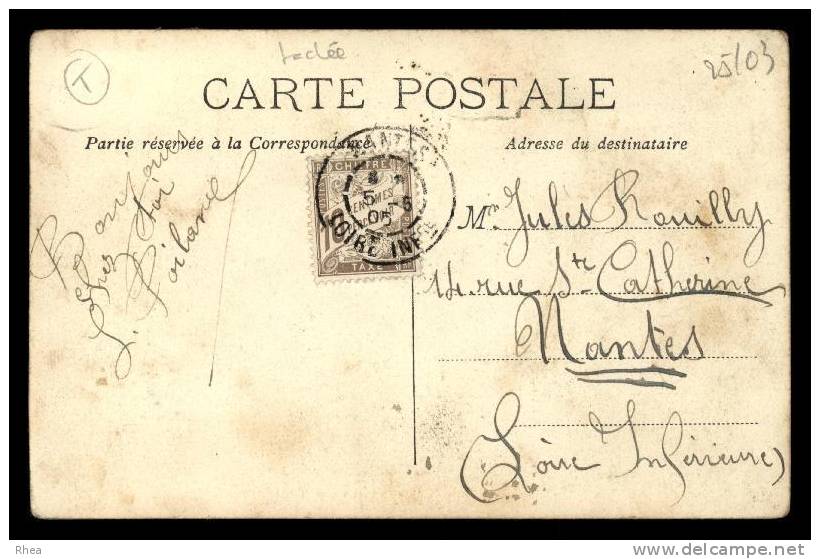 T
tachée
25/03
CARTE POSTALE
Partie réservée à la Correspondance
Adresse du destinataire
Bonjour
chez toi
NANTES
5 - 6
05
LOIRE INFRE
CHIFFRE
TAXE
Mr Jules Rouilly
14 rue Ste Catherine
Nantes
(Loire Inférieure)
Rhea
www.delcampe.net